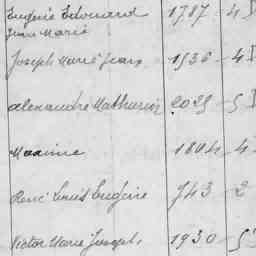 Eugène Edouard 1787 - 4
Jean Marie
Joseph Marie Jean 1936 - 4
Alexandre Mathurin 2029 - 5
Maxime 1804 - 4
René Louis Eugène 743 - 2
Victor Marie Joseph, 1930 - 5